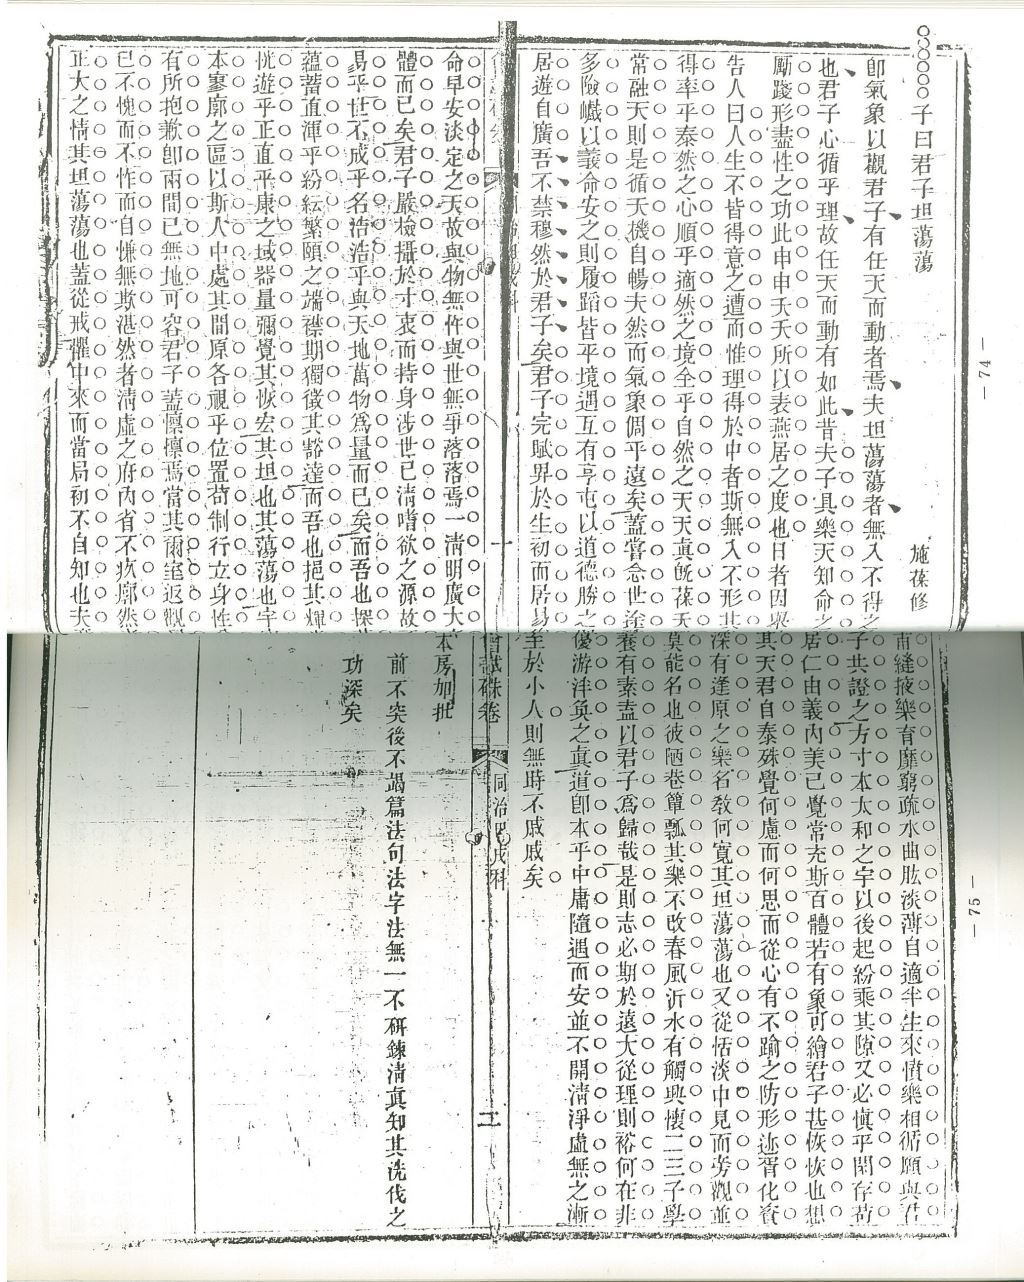 子曰君子坦蕩蕩
施葆修
卽氣象以觀君子有任天而動者焉夫坦蕩蕩者無入不得之
也君子心循乎理故任天而動有如此昔夫子具樂天知命之
勵踐形盡性之功此申申夭夭所以表燕居之度也日者因與
告人曰人生不皆得意之遭而惟理得於中者斯無入不形其
得率乎泰然之心順乎適然之境全乎自然之天天眞旣葆天
常融天則是循天機自暢夫然而氣象倜乎遠矣蓋嘗念世途
多險巇以義命安之則履蹈皆平境遇互有亨屯以道德勝之
居遊自廣吾不禁穆然於君子矣君子完賦畀於生初而居易
十
命早安淡定之天故與物無忤與世無爭落落焉一淸明廣大
體而已矣君子嚴檢攝於寸衷而持身涉世已淸嗜欲之源故
易乎世不成乎名浩浩乎與天地萬物爲量而已矣而吾也探
蘊蓄直渾乎紛紜繁賾之端襟期獨徵其豁達而吾也挹其煇
恍遊乎正直平康之域器量彌覺其恢宏其坦也其蕩蕩也宇
本寥廓之區以斯人中處其間原各視乎位置苟制行立身性
有所抱歉卽兩間已無地可容君子蓋懍懍焉當其爾室返觀
已不愧而不怍而自慊無欺湛然者淸虛之府內省不疚廓然
正大之情其坦蕩蕩也蓋從戒懼中來而當局初不自知也夫
74
甫縫掖樂育靡窮疏水曲肱淡薄自適半生來憤樂相循願與君
子共證之方寸本太和之宇以後起紛乘其隙又必愼乎閑存苟
居仁由義內美已覺常充斯百體若有象可繪君子甚恢恢也想
其天君自泰殊覺何慮而何思而從心有不踰之防形迹胥化資
深有逢原之樂名敎何寬其坦蕩蕩也又從恬淡中見而旁觀並
莫能名也彼陋巷簞瓢其樂不改春風沂水有觸興懷二三子學
養有素盍以君子爲歸哉是則志必期於遠大從理則裕何在非
優游泮奐之眞道卽本乎中庸隨遇而安並不開淸淨虛無之漸
至於小人則無時不戚戚矣
會試硃卷
同治甲戌科
本房加批
前不突後不竭篇法句法字法無一不硏鍊淸眞知其洗伐之
功深矣
75